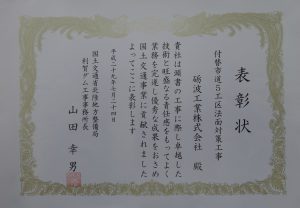 表彰状
付替市道5工区法面対策工事
砺波工業株式会社 殿
貴社は頭書の工事に際し卓越した
技術と旺盛なる責任感をもってよく
業務を完遂し優秀な成果をおさめ
国土交通事業に貢献されました
よってここに表彰します
平成二十九年七月二十四日
国土交通省北陸地方整備局
利賀ダム工事事務所長
山田幸男